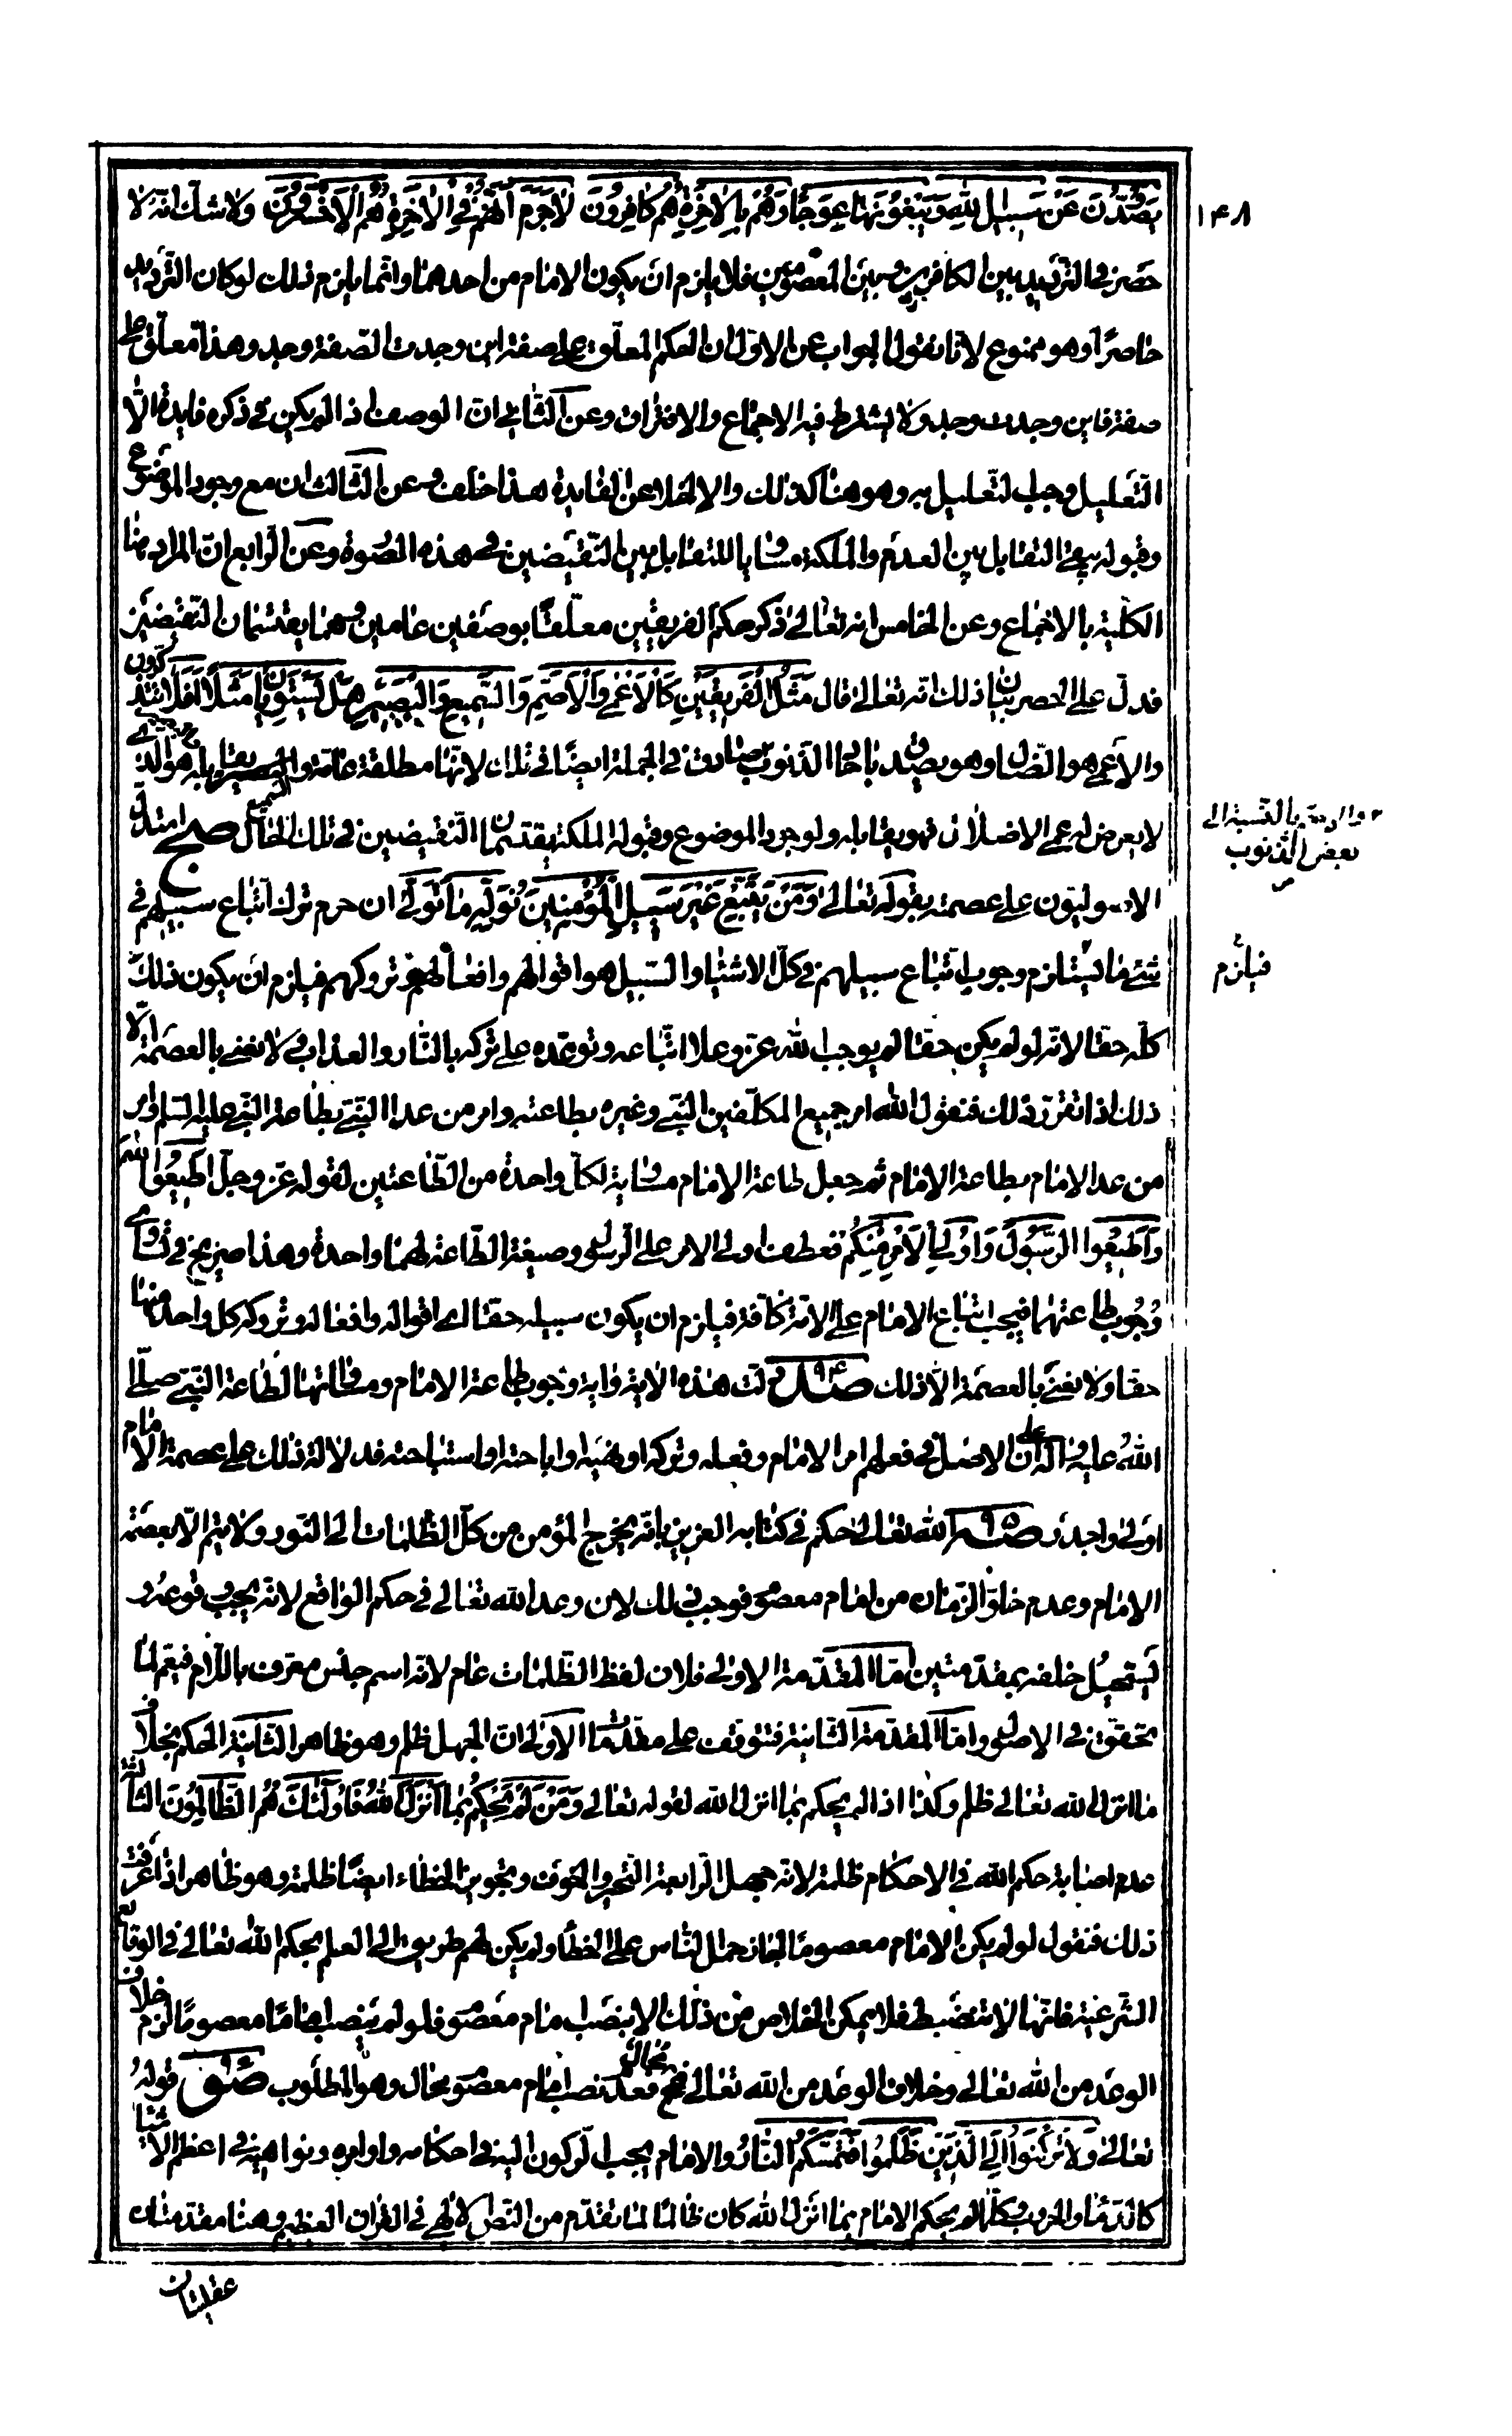 يصدون عن سبيل الله ويبغونها عوجا وهم بالاخرة هم كافرون لا جرم انهم في الاخرة هم الاخسرون ولا شك انه لا
١٤٨
حصر في الترديد بين الكافرين وبين المعصومين فلا يلزم ان يكون الامام من احدهما وانما يلزم ذلك لو كان الترديد
حاصرا وهو ممنوع لانا نقول الجواب عن الاول ان الحكم المعلق على صفة اين وجدت الصفة وجد وهذا معلق على
صفة فاين وجدت وجد ولا يشترط فيه الاجتماع والافتراق وعن الثاني ان الوصف اذا لم يكن في ذكره فايدة الا
التعليل وجب التعليل به وهو هنا كذلك والا لخلا عن الفايدة هذا خلف وعن الثالث ان مع وجود الموضوع
وقبوله يبقى التقابل بين العدم والملكة مساويا للتقابل بين النقيضين في هذه الصورة وعن الرابع ان المراد هنا
الكلية بالاجماع وعن الخامس انه تعالى ذكر حكم الفريقين معلقا بوصفين عامين وهما يقتسمان النقيضين
فدل على الحصر بيان ذلك انه تعالى قال مثل الفريقين كالاعمى والاصم والسميع والبصير هل يستويان مثلا افلا تتذكرون
والاعمى هو الضال وهو يصدق باحد الذنوب في الجملة ايضا في تلك لانها مطلقة عامة والسميع يقابله هو الذي
لا يعرض له عمى الاضلال فهو يقابله ولوجود الموضوع وقبوله الملكة يقتسمان النقيضين في تلك الحال صح استدل
والارمنة بالنسبة الى
بعض الذنوب
الاصوليون على عصمته بقوله تعالى ومن يتبع غير سبيل المؤمنين نوله ما تولى ان حرم ترك اتباع سبيلهم في
شيء ما فيستلزم وجوب اتباع سبيلهم في كل الاشياء والسبيل هو اقوالهم وافعالهم وتروكهم فيلزم ان يكون ذلك
فيلزم
كله حقا لانه لو لم يكن حقا لم يوجب الله عز وعلا اتباعه وتوعده على تركه بالنار والعذاب ولا نعني بالعصمة الا
ذلك اذا تقرر ذلك فنقول الله امر جميع المكلفين النبي وغيره بطاعته وامر من عدا النبي بطاعة النبي عليه السلم وامر
من عدا الامام بطاعة الامام ثم جعل طاعة الامام مساوية لكل واحدة من الطاعتين لقوله عز وجل اطيعوا الله
واطيعوا الرسول واولي الامر منكم فعطف اولي الامر على الرسول وصيغة الطاعة لهما واحدة وهذا صريح في تساوي
وجوب طاعتهما فيجب اتباع الامام على الامة كافة فيلزم ان يكون سبيله حقا اي اقواله وافعاله وتروكه كل واحد منها
حقا ولا نعني بالعصمة الا ذلك صد دلت هذه الاية واية وجوب طاعة الامام ومماثلتها لطاعة النبي صلى
الله عليه واله على ان الاصل في فعلهم امر الامام وفعله وتركه او نهيه او اباحته او استباحته فدلالة ذلك على عصمة الامام
اولى واجدر صه الله تعالى حكم في كتابه العزيز بانه يخرج المؤمن من كل الظلمات الى النور ولا يتم الا بعصمة
الامام وعدم خلو الزمان من امام معصوم فوجب ذلك لان وعد الله تعالى في حكم الواقع لانه يجب وقوعه و
يستحيل خلفه بمقدمتين اما المقدمة الاولى فلان لفظ الظلمات عام لانه اسم جنس معرف باللام فيعم لما
تحقق في الاصول واما المقدمة الثانية فتتوقف على مقدمات الاولى ان الجهل ظلم وهو ظاهر الثانية الحكم بخلاف
ما انزل الله تعالى ظلم وكذا اذا لم يحكم بما انزل الله لقوله تعالى ومن لم يحكم بما انزل الله فاولئك هم الظالمون الثالثة
عدم اصابة حكم الله في الاحكام ظلمة لانه جهل الرابعة التحير والخوف وتجويز الخطاء ايضا ظلمة وهو ظاهر اذا عرفت
ذلك فنقول لو لم يكن الامام معصوما لجاز حمل الناس على الخطأ ولم يكن لهم طريق الى العلم بحكم الله تعالى في الوقايع
الشرعية فانها لا تنضبط فلا يمكن الخلاص من ذلك الا بنصب امام معصوم فلو لم ينصب اماما معصوما لزم خلاف
الوعد من الله تعالى وخلاف الوعد من الله تعالى محال فعدم نصب امام معصوم محال وهو المطلوب صو قوله
تعالى ولا تركنوا الى الذين ظلموا فتمسكم النار والامام يجب الركون اليه في احكامه واوامره ونواهيه في اعظم الاشياء
كالدماء والحروب وكل من لم يحكم الامام بما انزل الله كان ظالما لما تقدم من النص الالهي في القران العظيم وهنا مقدمتان
عقليتان